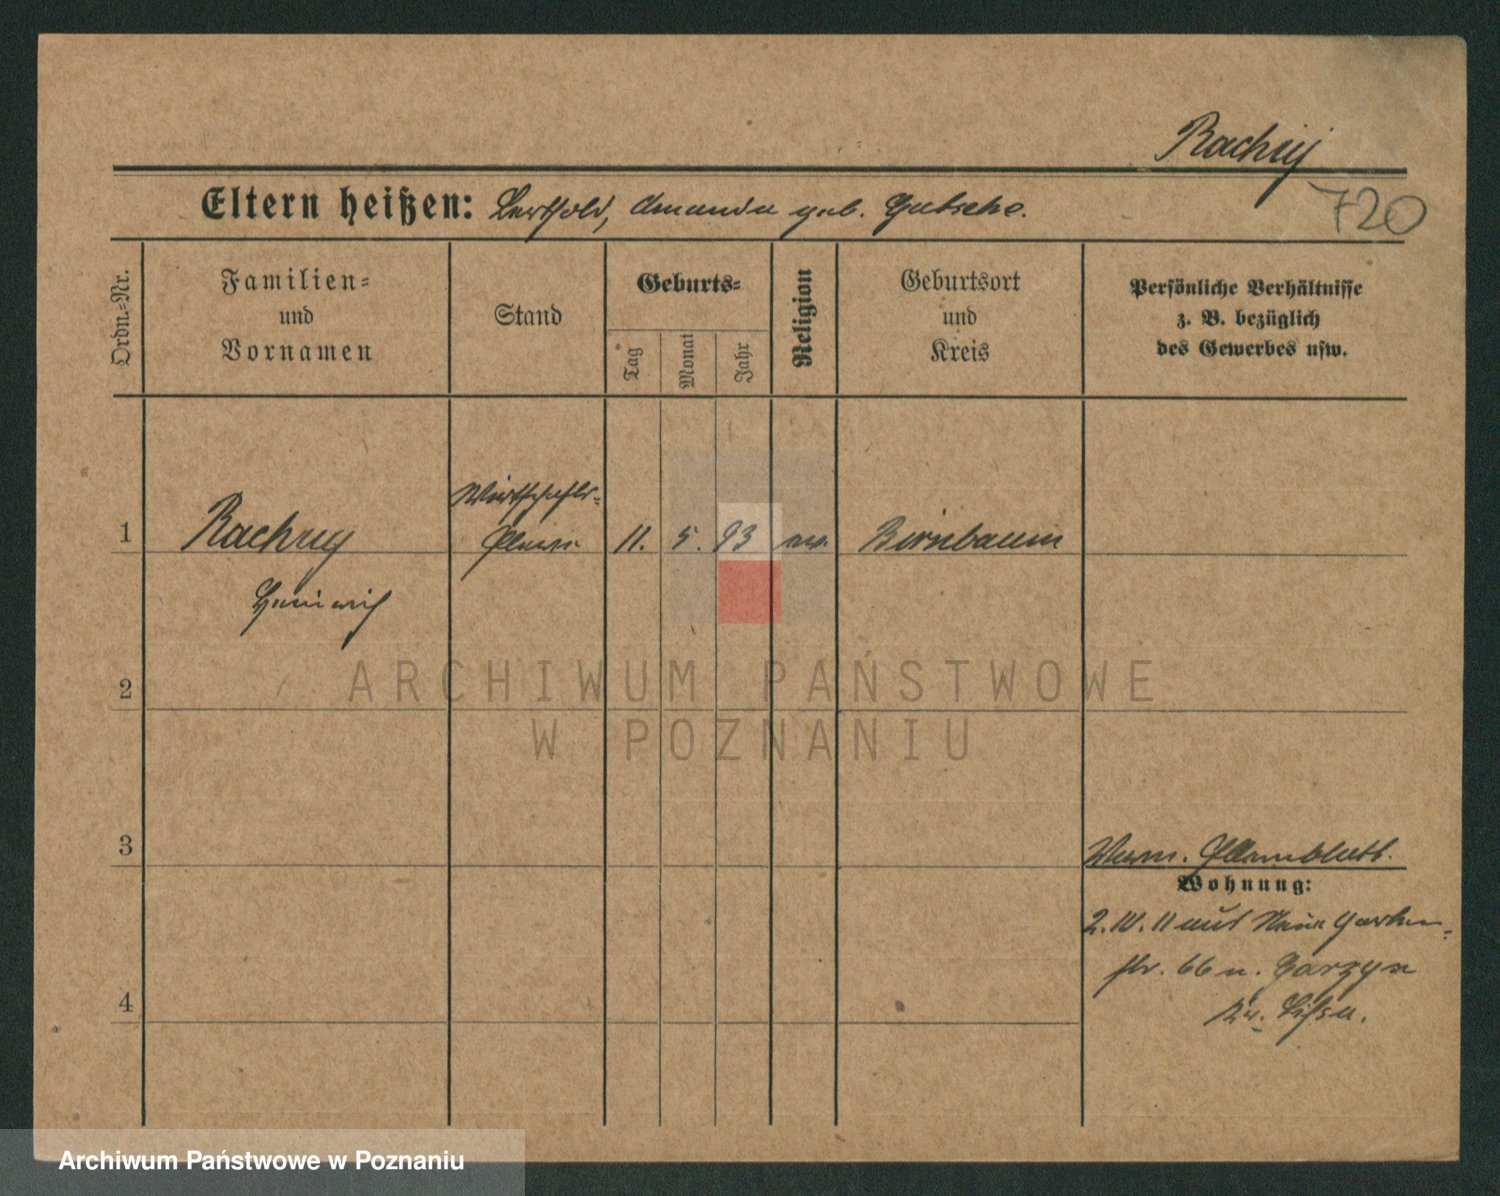 Rachuy
720
Eltern heißen: Berthold, Amanda geb. Gutsche.
Ordn.-Nr.
Familien-
und
Vornamen
Stand
Geburts-
Tag
Monat
Jahr
Religion
Geburtsort
und
Kreis
Persönliche Verhältnisse
z. B. bezüglich
des Gewerbes usw.
1
Rachuy
Heinrich
Wirtschafts-
Eleve
11. 5. 93
ev.
Birnbaum
2
3
4
Wohnung:
2.10.11 auf Neue Garten-
str. 66 n. Garzyn
Kr. Lissa.
ARCHIWUM PAŃSTWOWE
W POZNANIU
Archiwum Państwowe w Poznaniu